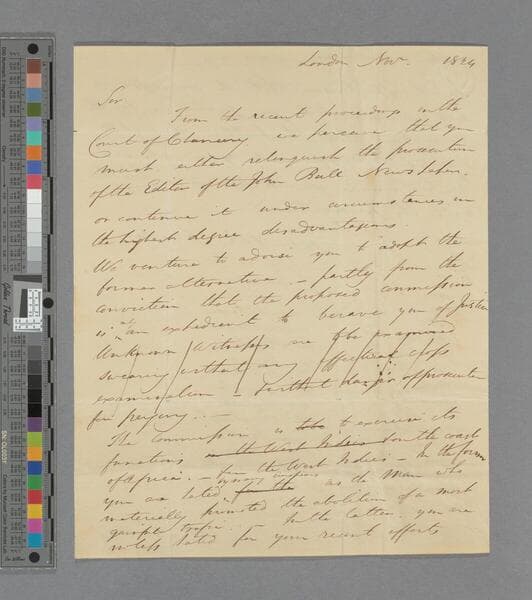 London Nov. 1824
Sir
From the recent proceedings in the
Court of Chancery we perceive that you
must either relinquish the prosecution
of the Editor of the John Bull Newspaper
or continue it under circumstances in
the highest degree disadvantageous.
We venture to advise you to adopt the
former alternative. - partly from the
conviction that the proposed commission
is "an expedient to bereave you of Justice
Unknown Witnesses are to be examined
swearing without any effectual cross
examination - without danger of prosecution
for perjury. -
The Commission is to exercise its
functions in the West Indies on the coast
of Africa. - in the West Indies - In the former
you are hated by as the Man who
materially promoted the abolition of a most
traffic. In the latter you are
no less hated for your recent efforts